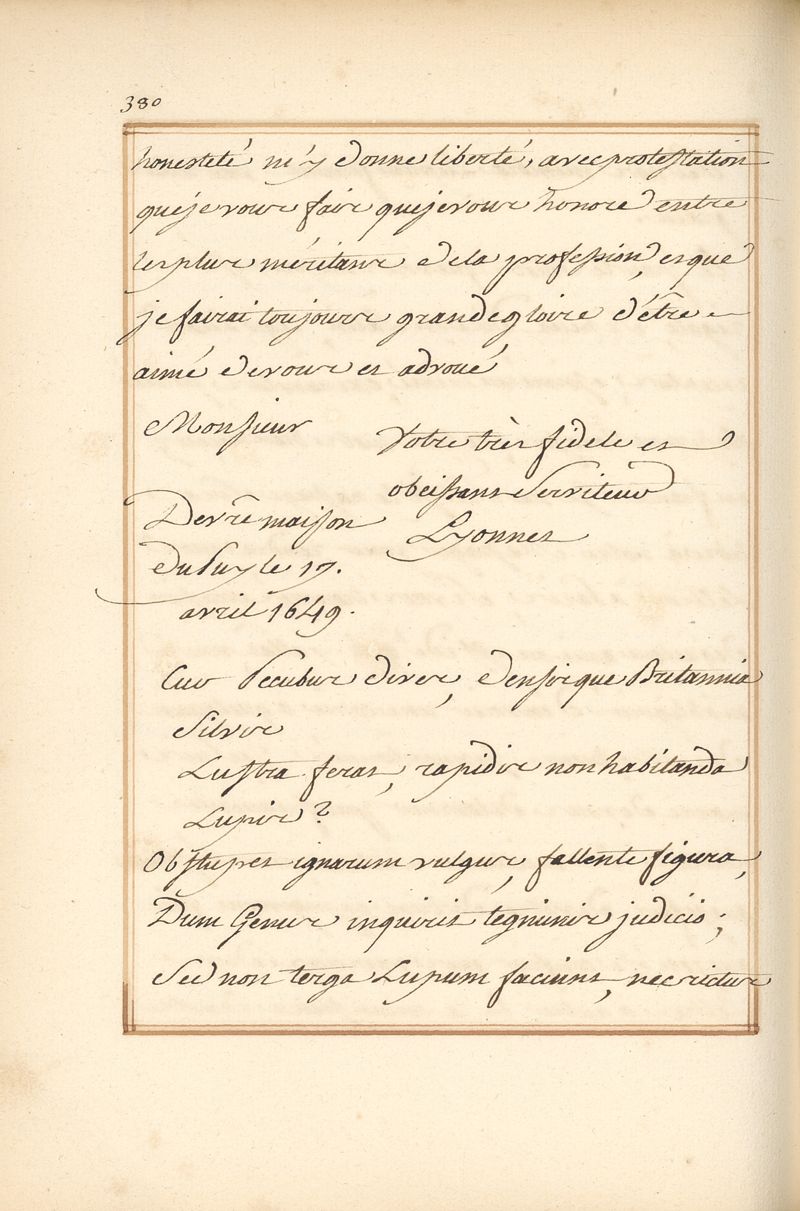 380
honesteté m'y donne liberté, avec protestation
que je vous fais que je vous honore entre
les plus méritans de la profession, et que
je fairai toujours grande gloire d'être
aimé de vous et advoué
Monsieur
Votre très fidele et
obeissant Serviteur
Lyonnet
De vre maison
du Puy le 17.
avril 1649.
dives, densisque Britannia
Silvis
Lustra feras, rapidis non habitanda
Lupis?
Obstupet ignarum vulgus, fallente figura,
Dum Genus inquirit tegminis judicio;
Sed non terga Lupum faciunt, nec rictus